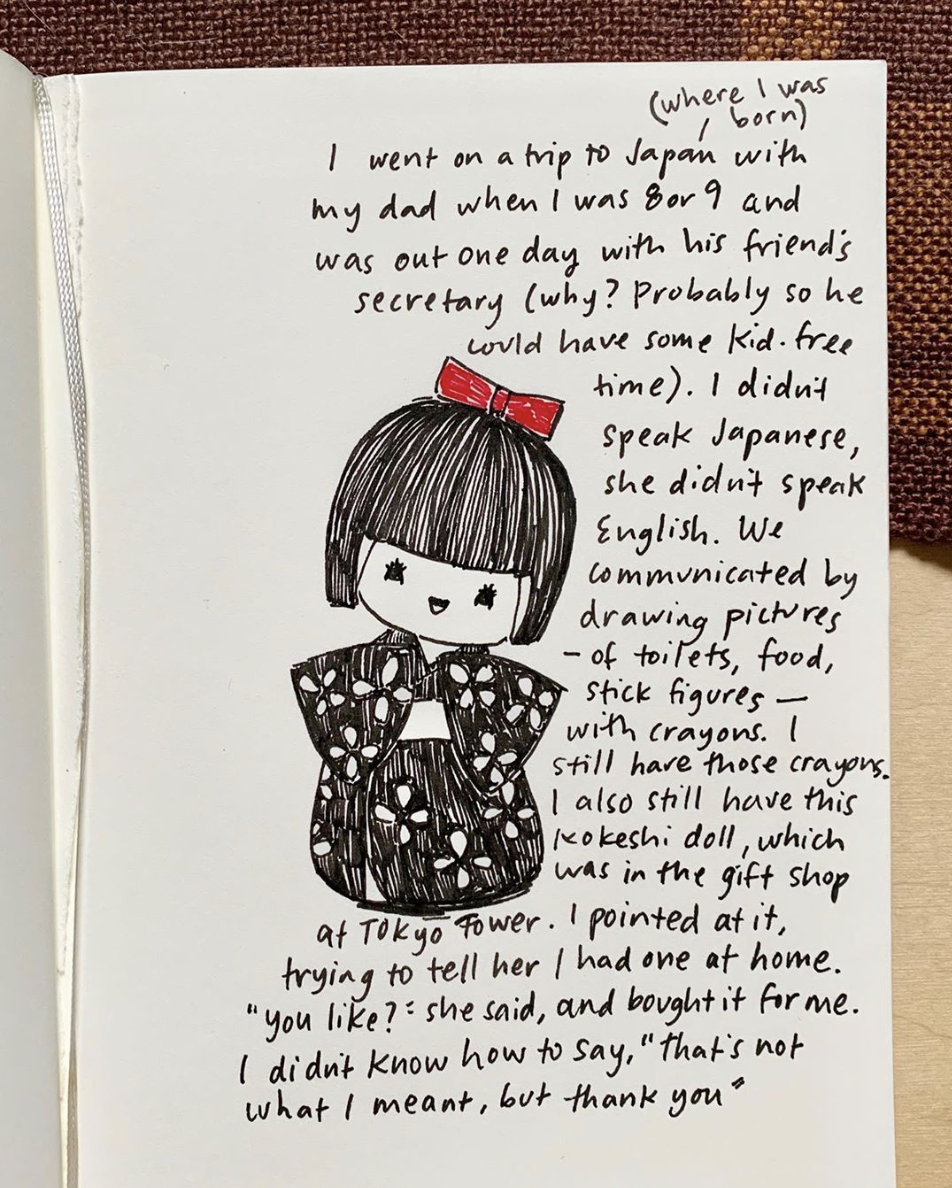 (where I was
born)
I went on a trip to Japan with
my dad when I was 8 or 9 and
was out one day with his friend's
secretary (why? Probably so he
could have some kid-free
time). I didn't
speak Japanese,
she didn't speak
English. We
communicated by
drawing pictures
- of toilets, food,
stick figures —
with crayons. I
still have those crayons.
I also still have this
kokeshi doll, which
was in the gift shop
at Tokyo Tower. I pointed at it,
trying to tell her I had one at home.
"you like?" she said, and bought it for me.
I didn't know how to say, "that's not
what I meant, but thank you"